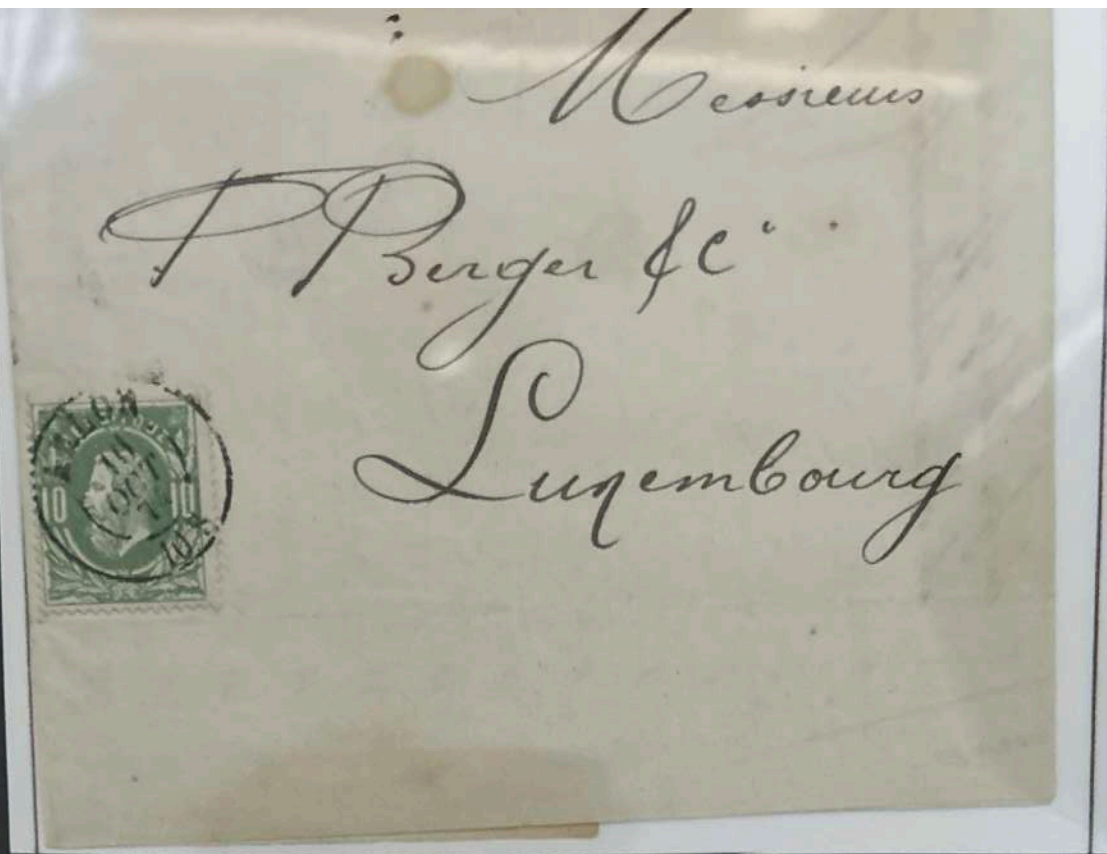 Messieurs
P Berger & Cie
Luxembourg
ARLON
10 10
OCT